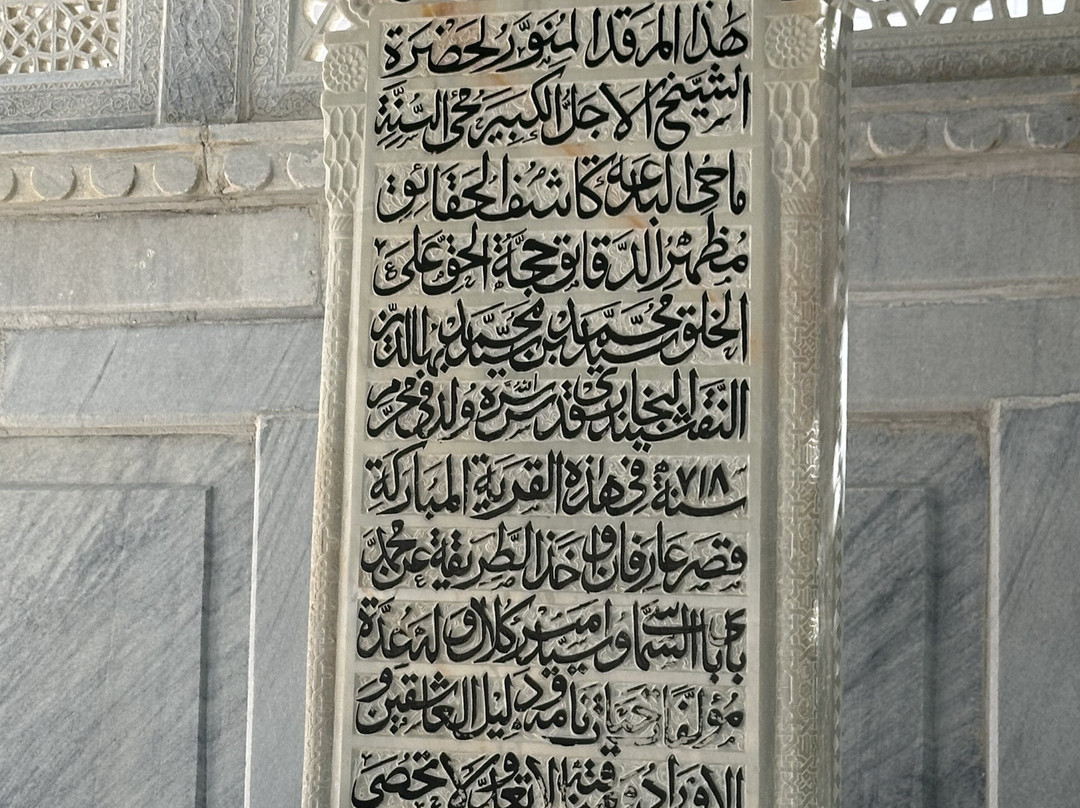 هذا المرقد المنور لحضرة
الشيخ الاجل الكبير محي السنة
ماحي البدعة كاشف الحقائق
مظهر الدقائق حجة الحق على
الخلق سيد محمد بن سيد محمد بهاالدين
النقشبند البخاري قدس الله سره ولد في محرم
سنة ٧١٨ في هذه القرية المباركة
قصر عارفان واخذ الطريقة عن محمد
بابا السماسي وسيد امير كلال وله عدة
مؤلفات حيات نامه ودليل العاشقين و
الاوراد لا تعد ولا تحصى